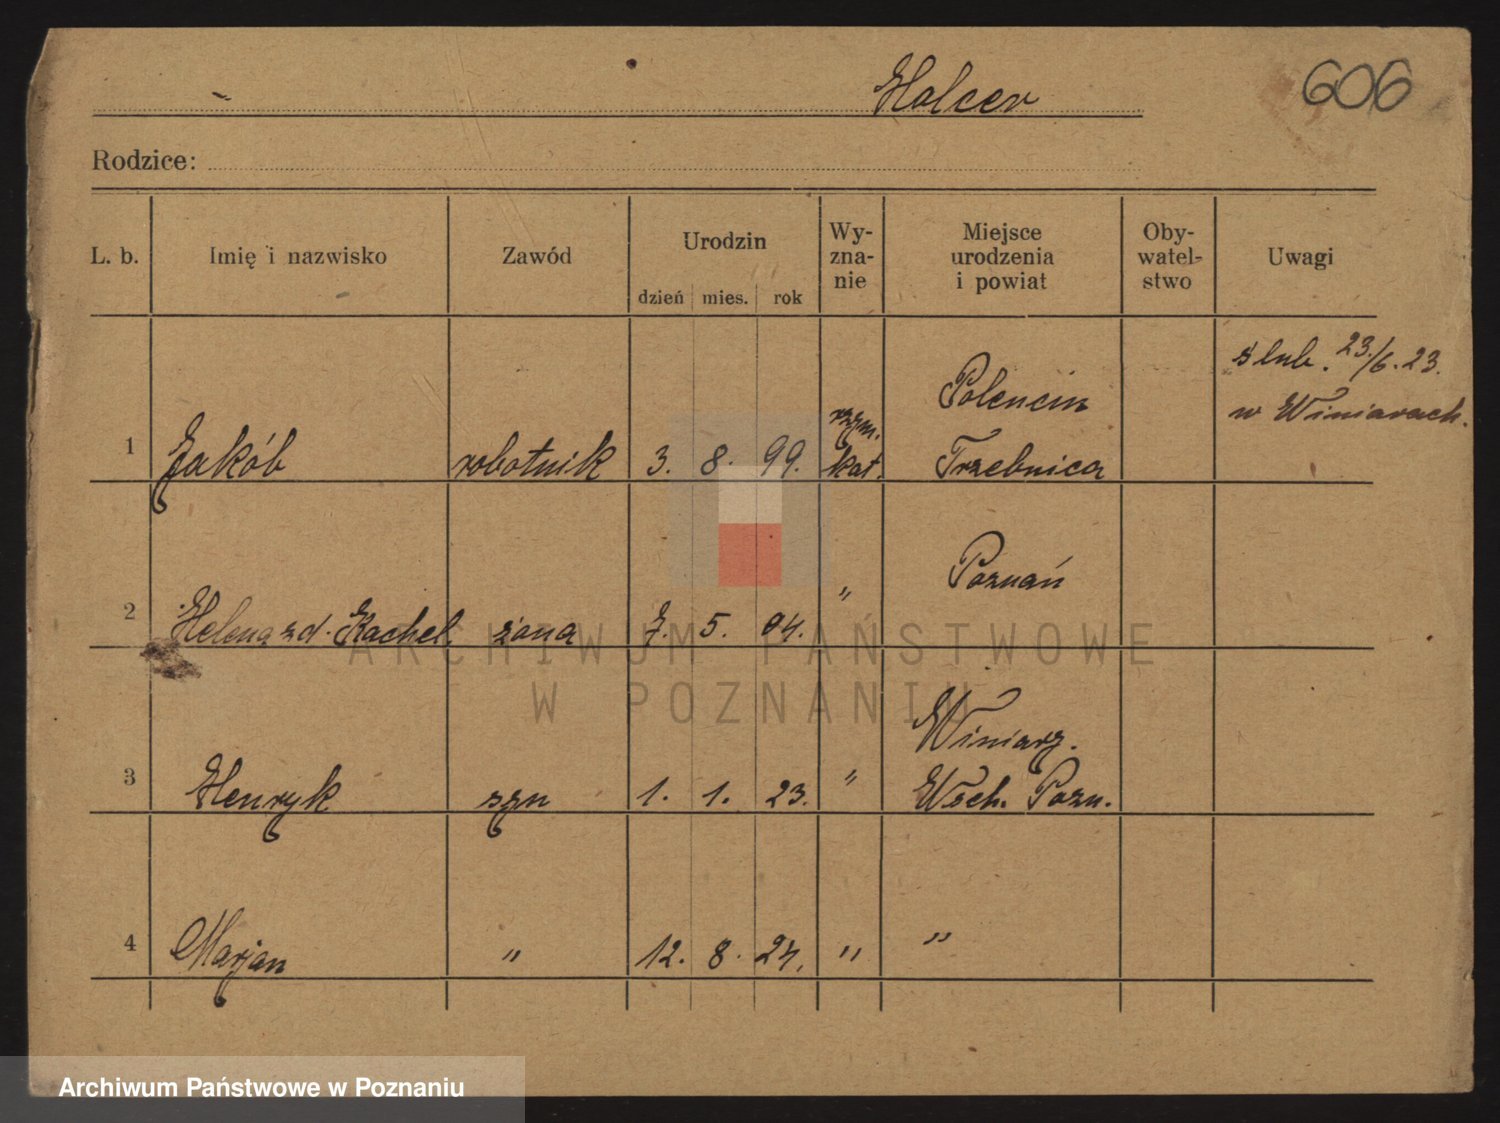 Holcer
606
Rodzice:
L. b. Imię i nazwisko Zawód Urodzin dzień mies. rok Wy-zna-nie Miejsce urodzenia i powiat Oby-watel-stwo Uwagi
ślub. 23./6. 23.
w Winiarach.
Polencin
rzym.
1 Jakób robotnik 3. 8. 99. kat. Trzebnica
Poznań
2 Helena zd. Kachel. żona 7. 5. 04. "
Winiarg.
3 Henryk syn 1. 1. 23. " Wsch. Pozn.
4 Marjan " 12. 8. 24. " "
ARCHIWUM PAŃSTWOWE
W POZNANIU
Archiwum Państwowe w Poznaniu